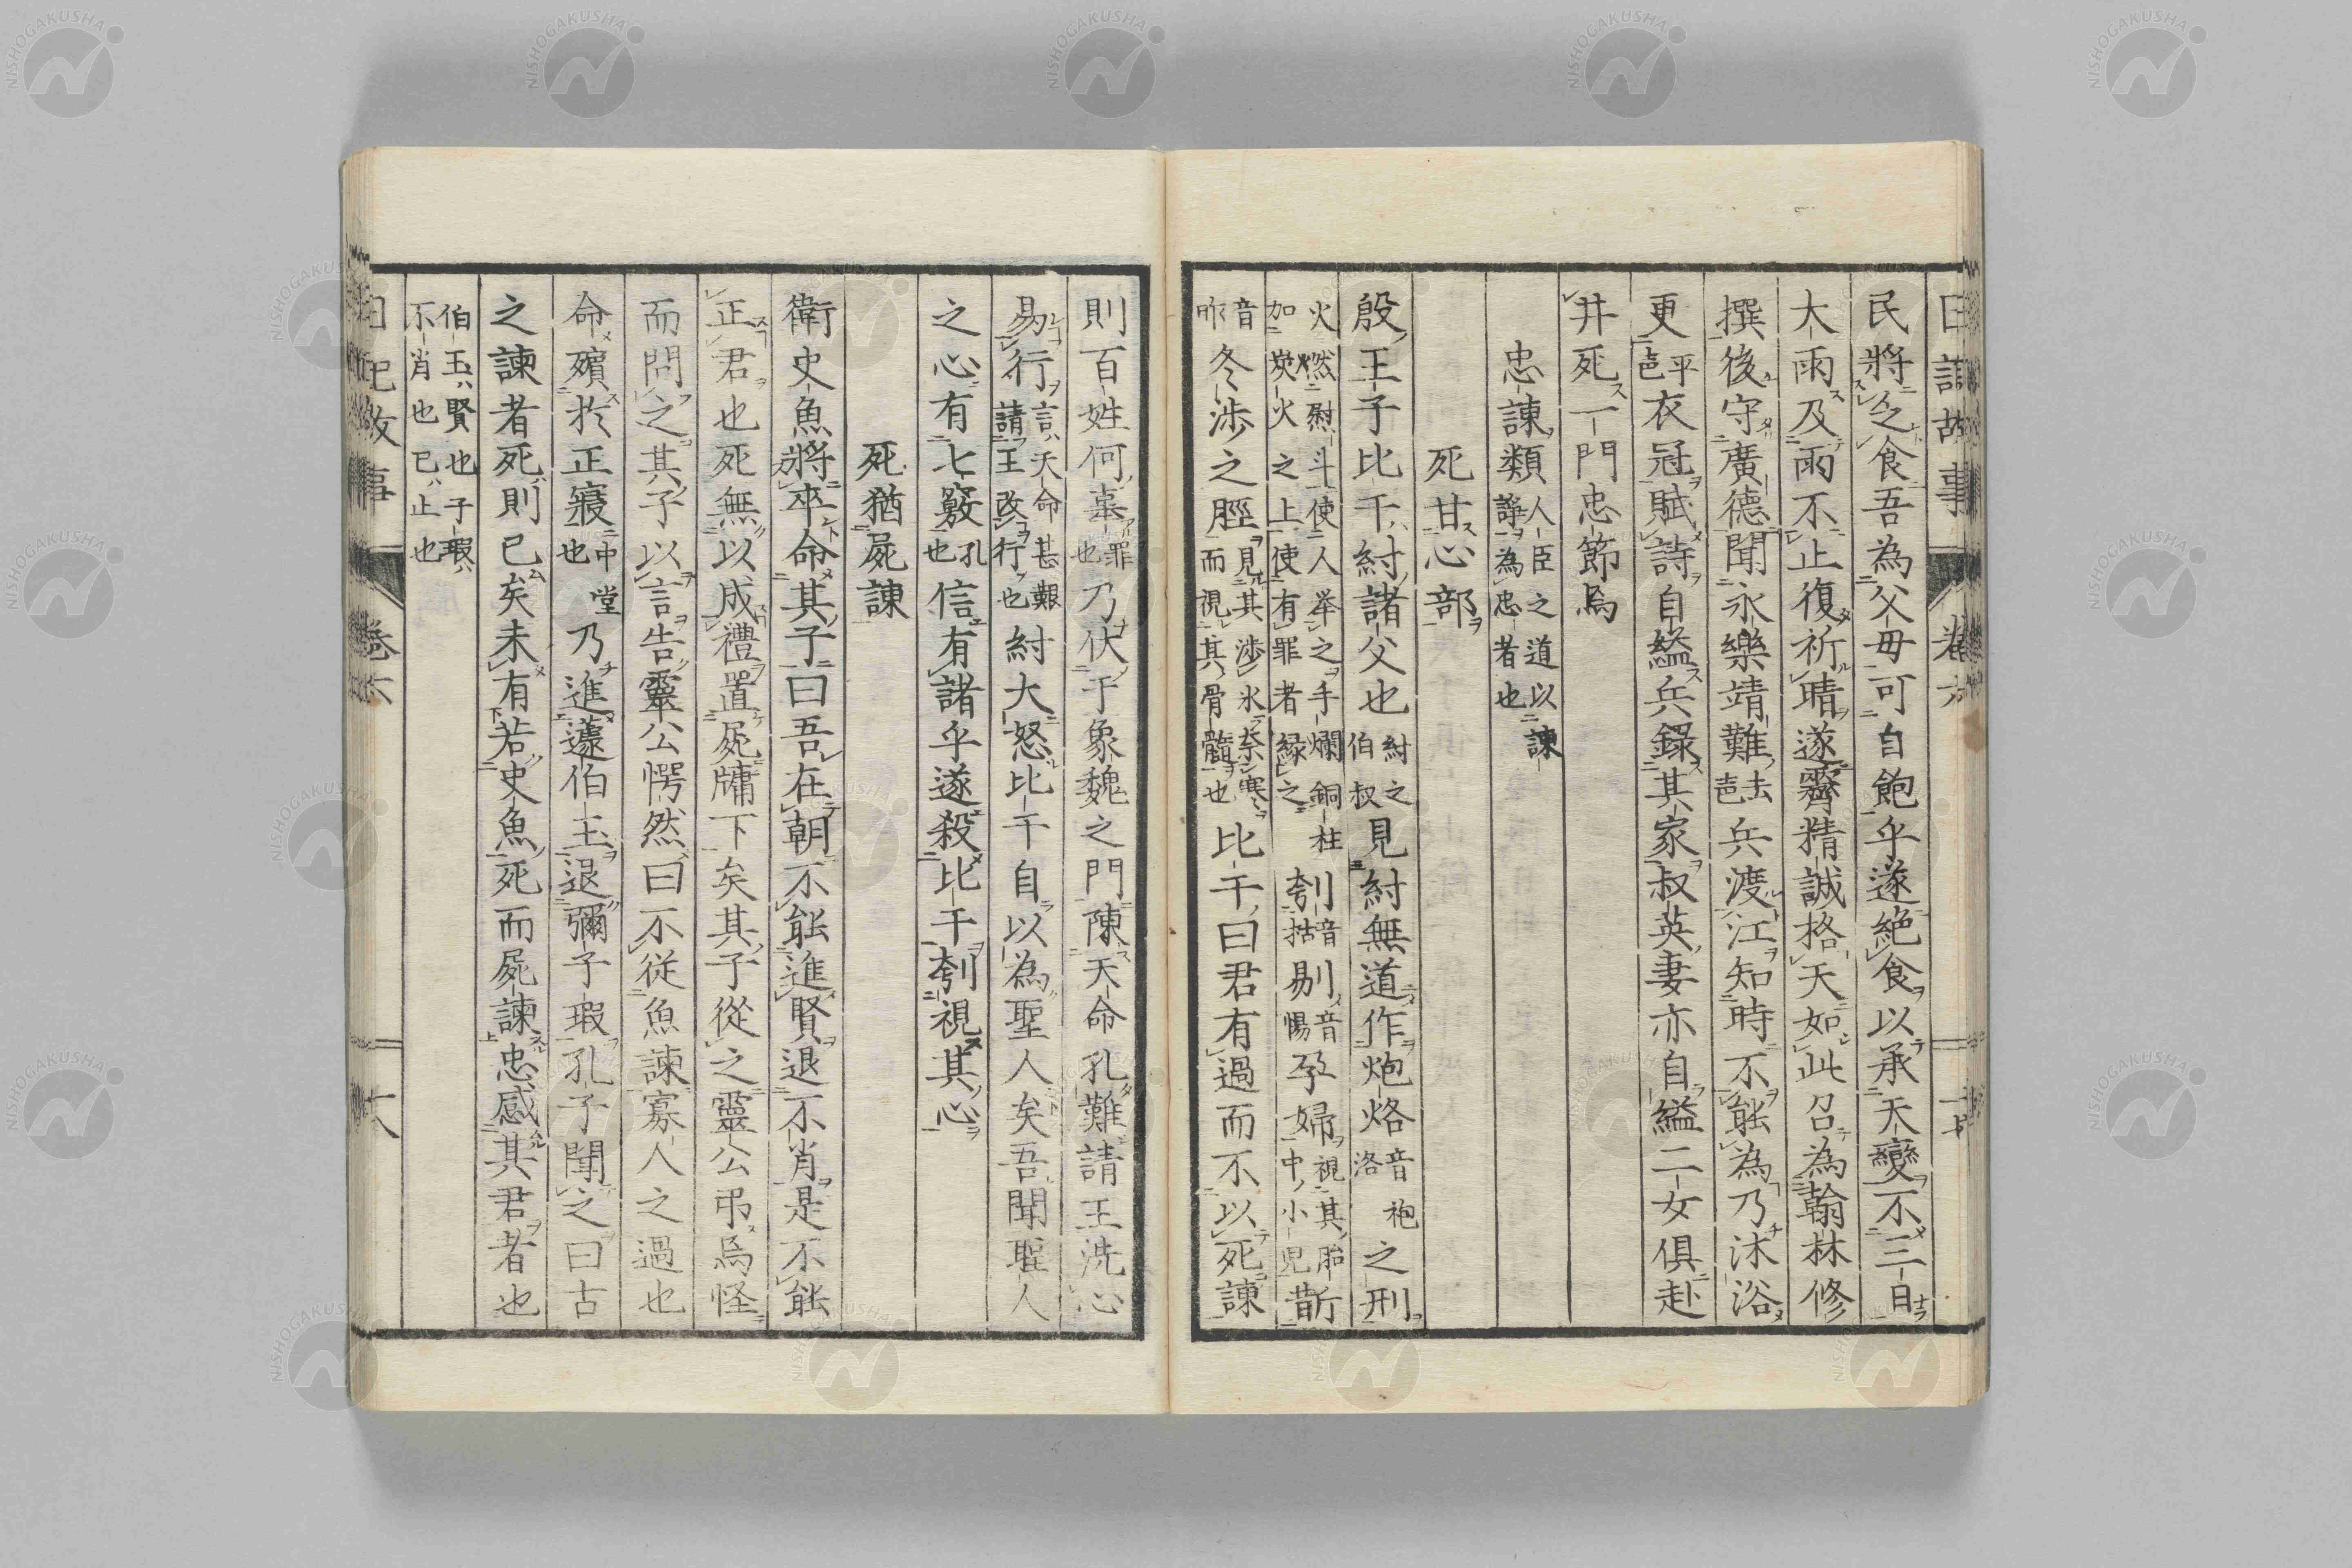 民將乏食吾為父毋可自飽乎遂絶食以承天變不三日
大雨及雨不止復祈晴遂霽精誠格天如此召為翰林修
撰後守廣德聞永樂靖難去邑兵渡江知時不能為乃沐浴
更平邑衣冠賦詩自縊兵錄其家叔英妻亦自縊二女俱赴
井死一門忠節焉
忠諫類人臣之道以諫諍為忠者也
死甘心部
殷王子比干紂諸父也紂之伯叔見紂無道作炮烙音袍洛之刑
火燃慰斗使人舉之手爛銅柱加炭火之上使有罪者緑之刳音枯剔音惕孕婦視其胎中小兒斮
音昨冬涉之脛見其渉氷奈寒而視其骨髓也比干曰君有過而不以死諫
則百姓何辜罪也乃伏于象魏之門陳天命孔難請王洗心
易行言天命甚艱請王改行也紂大怒比干自以為聖人矣吾聞聖人
之心有七竅孔也信有諸乎遂殺比干刳視其心
死猶屍諫
衛史魚將卒命其子曰吾在朝不能進賢退不肖是不能
正君也死無以成禮置屍牖下矣其子從之靈公弔焉怪
而問之其子以言告靈公愕然曰不從魚諫寡人之過也
命殯於正寢中堂也乃進蘧伯玉退彌子瑕孔子聞之曰古
之諫者死則已矣未有若史魚死而屍諫忠感其君者也
伯玉賢也子瑕不肖也已止也
日記故事
卷六